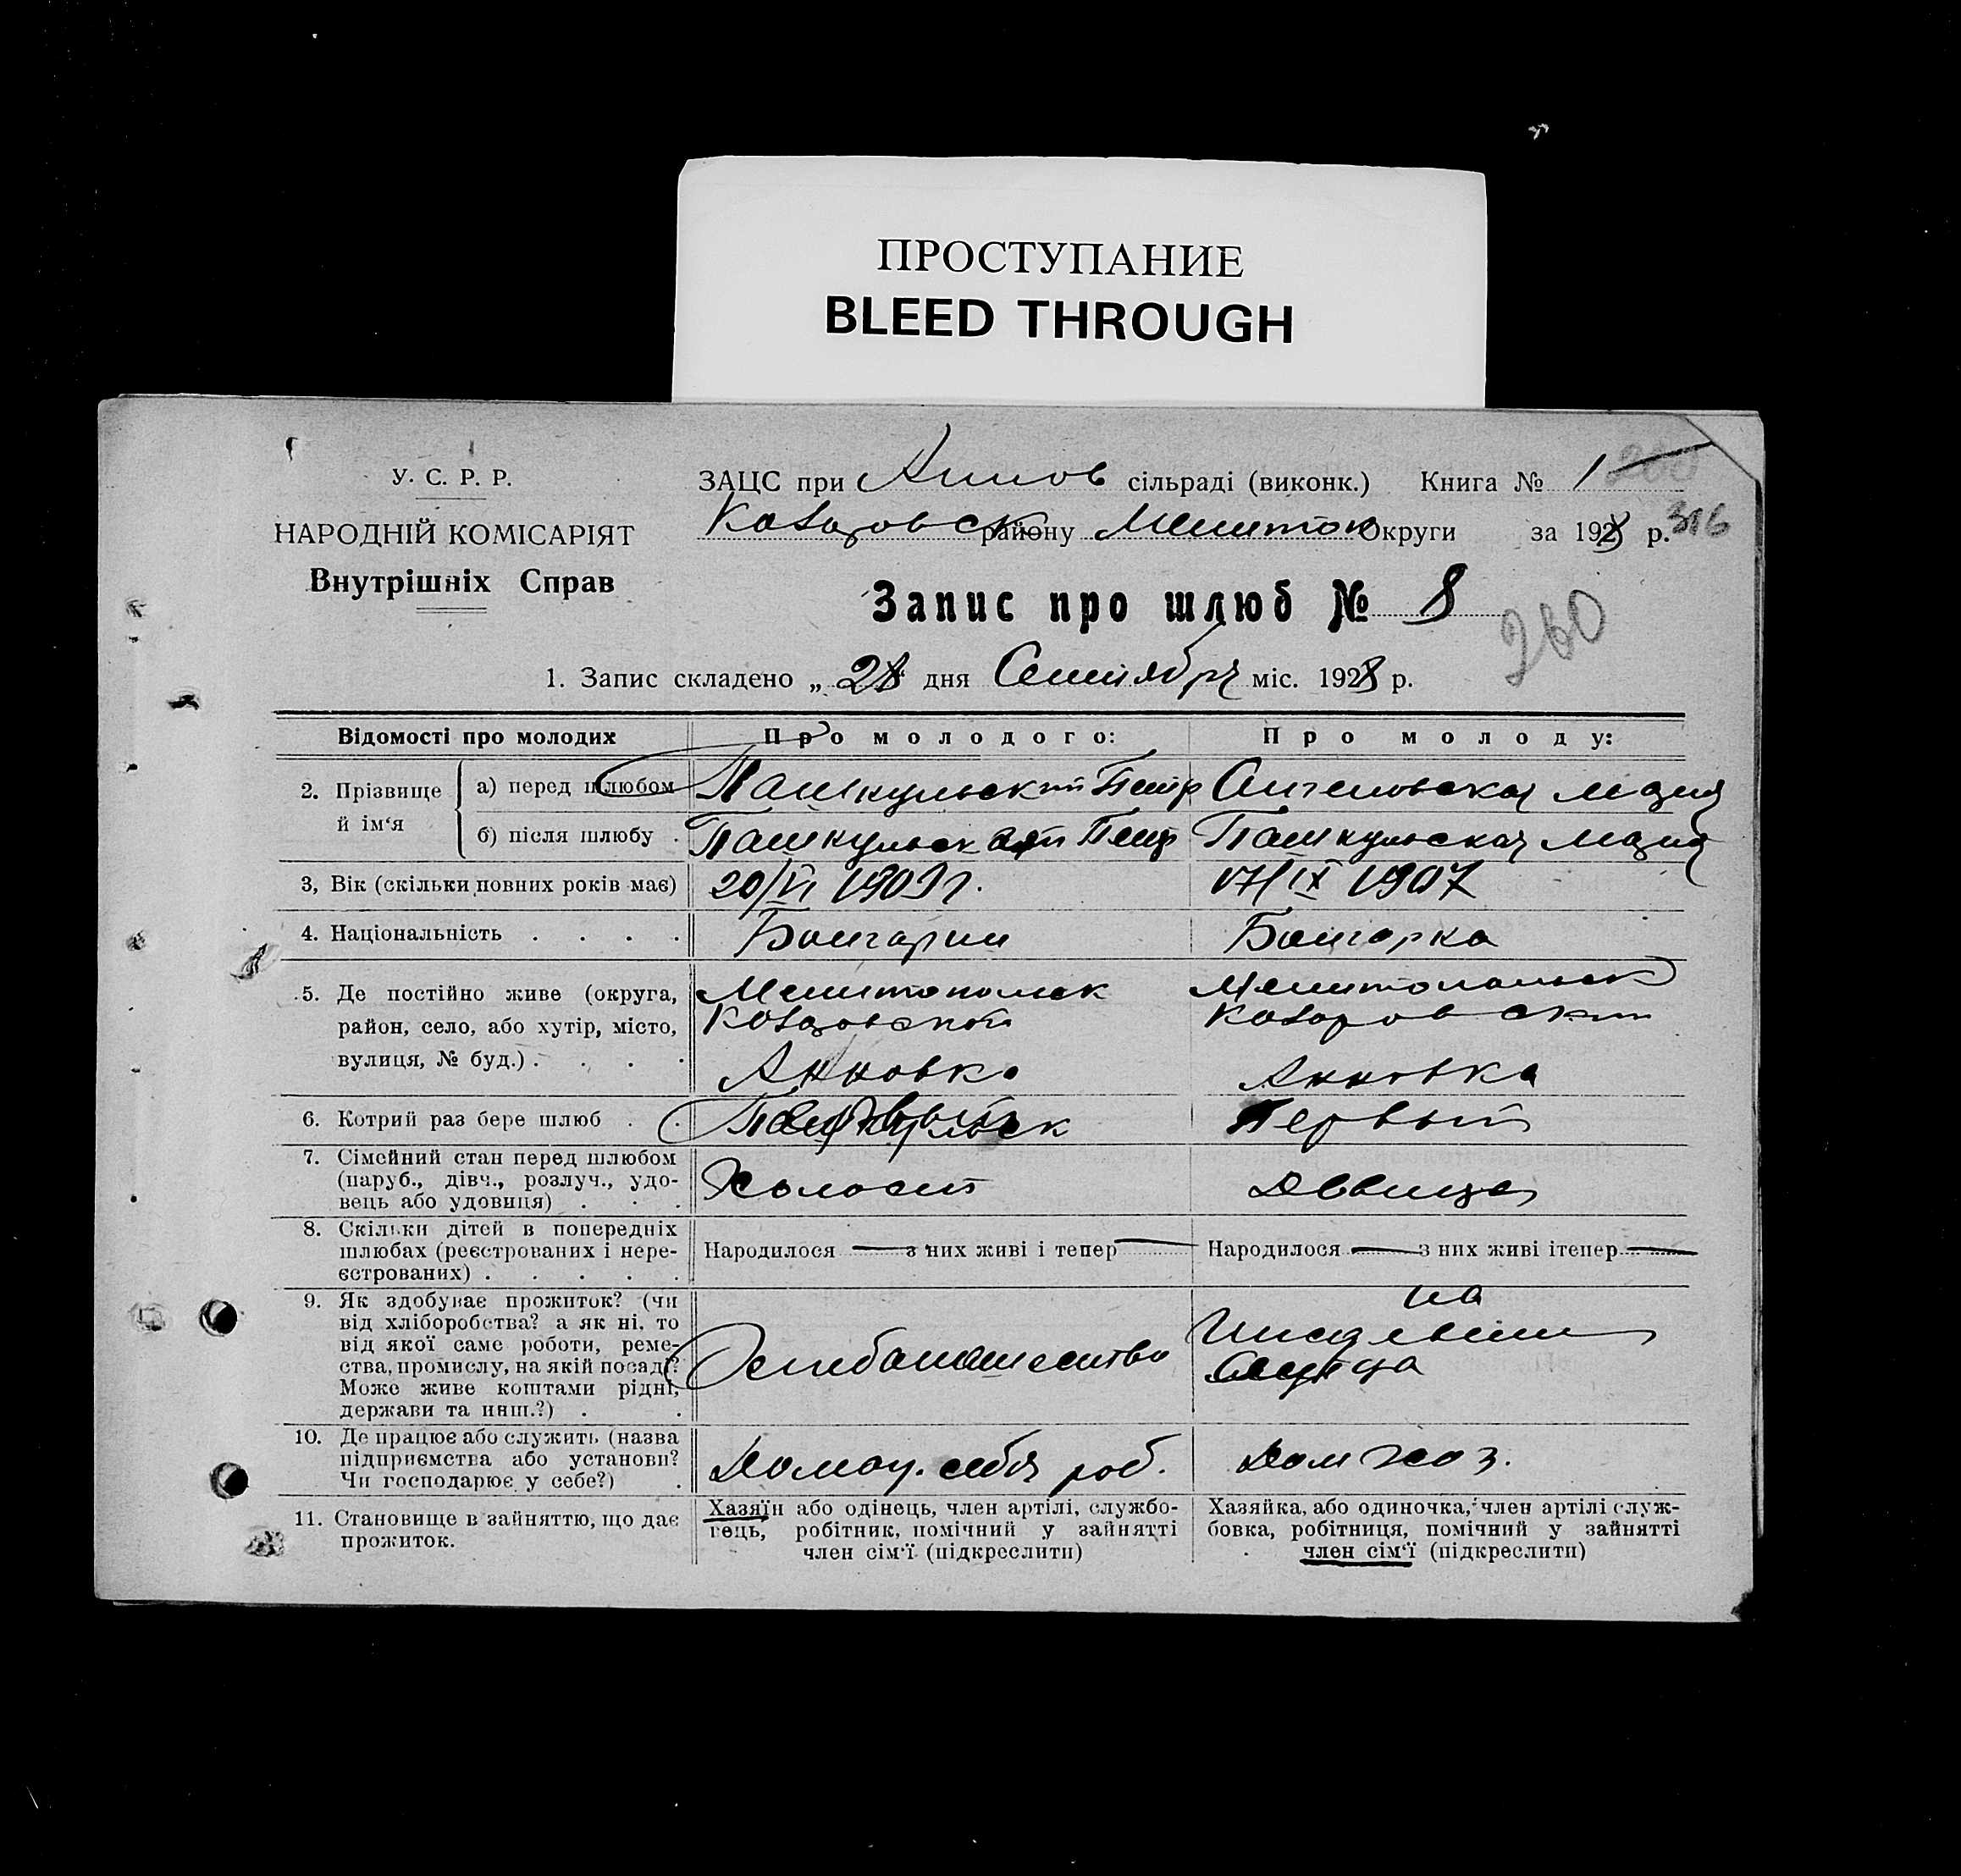 ПРОСТУПАНИЕ
BLEED THROUGH
У. С. Р. Р.
НАРОДНІЙ КОМІСАРІЯТ
Внутрішніх Справ
ЗАЦС при Аннов сільраді (виконк.) Книга № 1
району Мелитоп Округи за 1928 р. 316
Запис про шлюб № 8
260
1. Запис складено „ 28 дня Сентября міс. 1928 р.
Відомості про молодих Про молодого: Про молоду:
2. Прізвище й ім‘я
а) перед шлюбом Пашкульский Петр Ангеловская Мария
б) після шлюбу . Пашкульский Петр Пашкульская Мария
3, Вік (скільки повних років має) 20/VI 1909 г. 17/IX 1907
4. Національність . . . . Болгарин Болгарка
5. Де постійно живе (округа, Мелитопольск Мелитопольск
район, село, або хутір, місто,
вулиця, № буд.) . . . . Анновка Анновка
6. Котрий раз бере шлюб . . Первый
7. Сімейний стан перед шлюбом
(паруб., дівч., розлуч., удо-
вець або удовиця) . . . Холост Девица
8. Скільки дітей в попередніх
шлюбах (реєстрованих і нере-
єстрованих) . . . . . Народилося — з них живі і тепер — Народилося — з них живі ітепер —
9. Як здобуває прожиток? (чи на
від хліборобства? а як ні, то
від якої саме роботи, реме-
ства, промислу, на якій посаді? Хлебопашество отца
Може живе коштами рідні,
держави та инш.?) . .
10. Де працює або служить (назва
підприємства або установи?
Чи господарює у себе?) . Дома у себя раб. Дом хоз.
11. Становище в зайняттю, що дає
прожиток.
Хазяїн або одінець, член артілі, службо-
вець, робітник, помічний у зайнятті
член сім‘ї (підкреслити)
Хазяйка, або одиночка, член артілі служ-
бовка, робітниця, помічний у зайнятті
член сім‘ї (підкреслити)